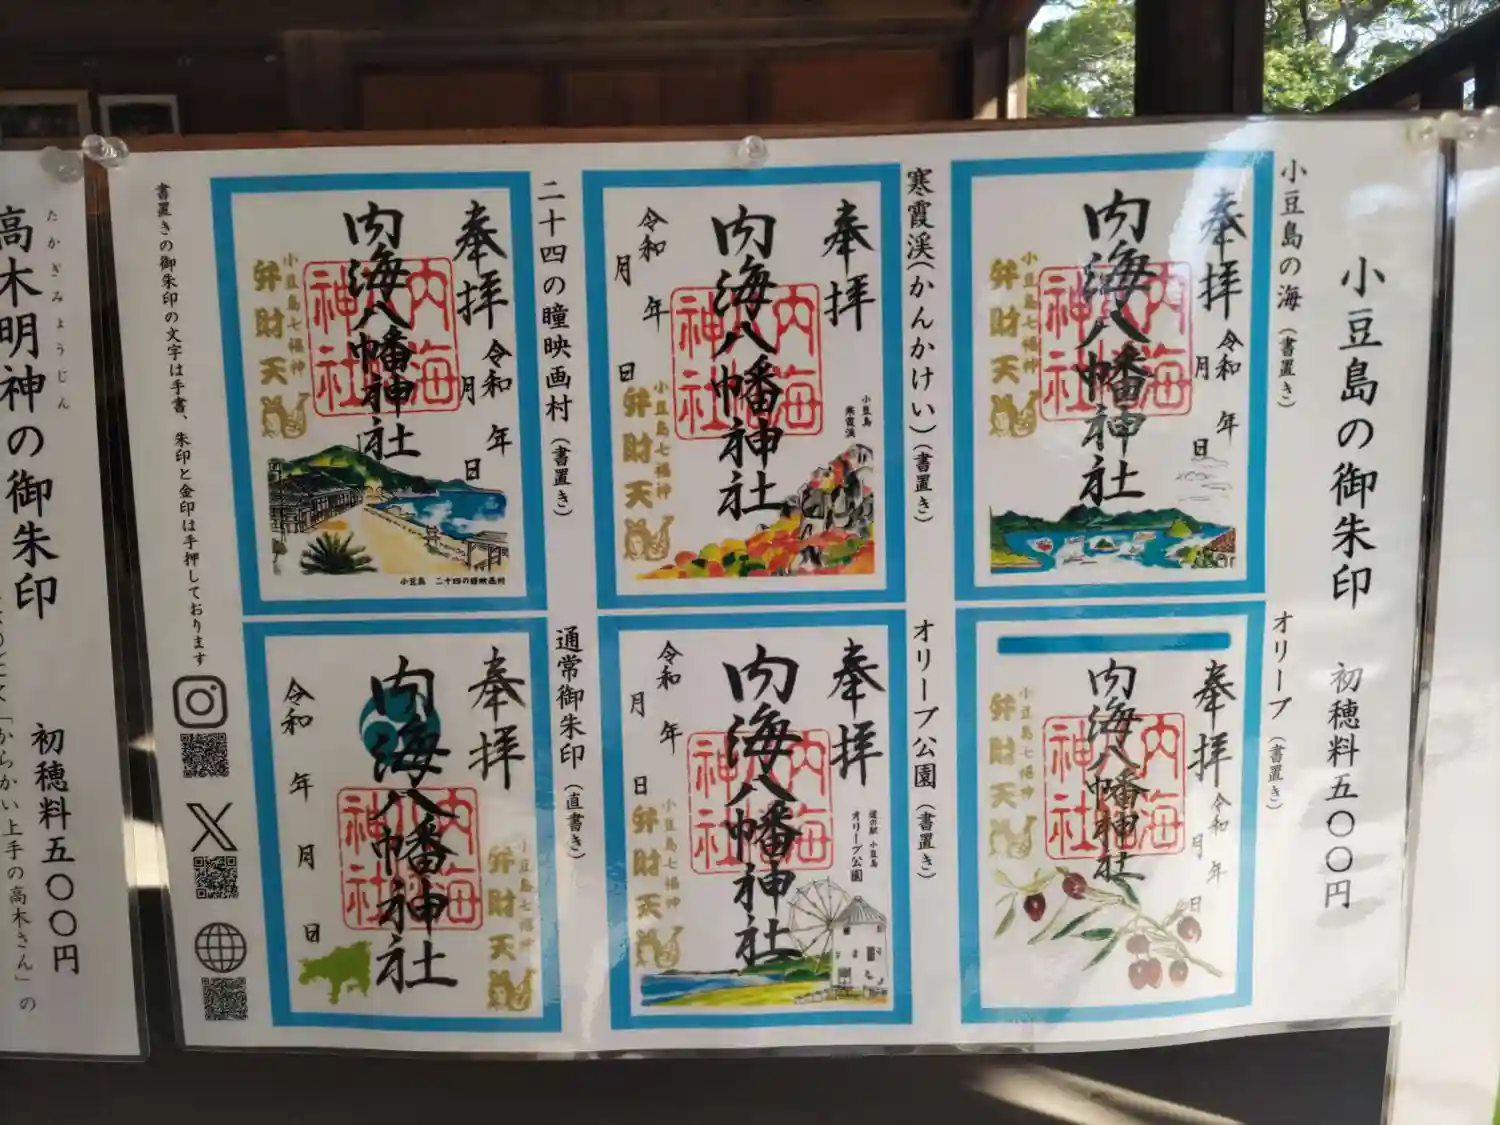 小豆島の御朱印 初穂料五〇〇円
小豆島の海（書置き）
奉拝
内海八幡神社
令和 年 月 日
内海八幡神社
小豆島七福神
弁財天
オリーブ（書置き）
奉拝
内海八幡神社
令和 年 月 日
内海八幡神社
小豆島七福神
弁財天
寒霞渓（かんかけい）（書置き）
奉拝
内海八幡神社
令和 年 月 日
内海八幡神社
小豆島七福神
弁財天
小豆島
寒霞渓
オリーブ公園（書置き）
奉拝
内海八幡神社
令和 年 月 日
内海八幡神社
小豆島七福神
弁財天
道の駅 小豆島
オリーブ公園
二十四の瞳映画村（書置き）
奉拝
内海八幡神社
令和 年 月 日
内海八幡神社
小豆島七福神
弁財天
小豆島 二十四の瞳映画村
通常御朱印（直書き）
奉拝
内海八幡神社
令和 年 月 日
内海八幡神社
小豆島七福神
弁財天
書置きの御朱印の文字は手書、朱印と金印は手押しております
高木明神の御朱印 初穂料五〇〇円
たかぎみょうじん
「からかい上手の高木さん」の